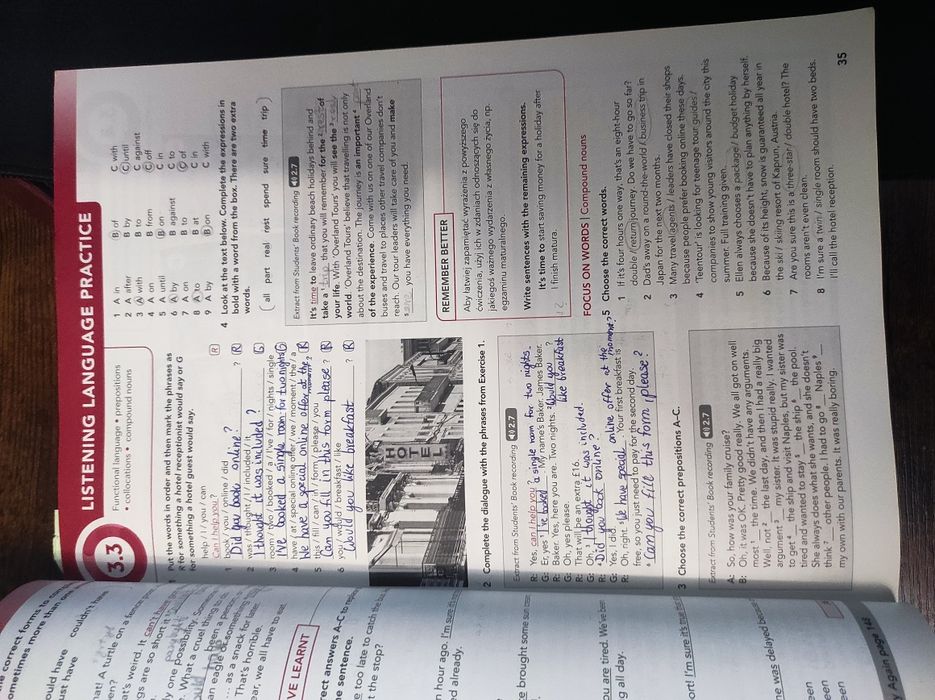 3.3
LISTENING LANGUAGE PRACTICE
Functional language • prepositions
• collocations • compound nouns
1 Put the words in order and then mark the phrases as
R for something a hotel receptionist would say or G
for something a hotel guest would say.
help / I / you / can
Can I help you? R
1 book / you / online / did
Did you book online? ? R
2 was / thought / it / I / included / it
I thought it was included ? G
3 room / I've / booked / a / for / nights / single
I've booked a single room for two nights G
4 have / at / special online offer / we / moment / the / a
We have a special online offer at the moment ? R
5 this / fill / can / in / form / please / you
Can you fill in this form please ? R
6 you / would / breakfast / like
Would you like breakfast ? R
HOTEL
2 Complete the dialogue with the phrases from Exercise 1.
Extract from Students' Book recording 2.7
R: Yes, can I help you?
G: Er, yes 1 I've booked a single room for two nights. My name's Baker. James Baker.
R: Baker. Yes, here you are. Two nights. 2 Would you like breakfast ?
G: Oh, yes please.
R: That will be an extra £16.
G: Oh, 3 I thought it was included.
R: 4 Did you book online ?
G: Yes, I did.
R: Oh, right 5 We have special online offer at the moment? . Your first breakfast is
free, so you just need to pay for the second day.
6 Can you fill this form please?
3 Choose the correct prepositions A–C.
Extract from Students' Book recording 2.7
A: So, how was your family cruise?
B: Oh, it was OK. Pretty good really. We all got on well
most 1 the time. We didn't have any arguments.
Well, not 2 the last day, and then I had a really big
argument 3 my sister. It was stupid really. I wanted
to get 4 the ship and visit Naples, but my sister was
tired and wanted to stay 5 the ship 6 the pool.
She always does what she wants, and she doesn't
think 7 other people. I had to go 8 Naples 9
my own with our parents. It was really boring.
1 A in B of C with
2 A after B by C until
3 A with B to C against
4 A on B from C off
5 A until B on C in
6 A by B against C to
7 A on B to C of
8 A to B at C in
9 A by B on C with
4 Look at the text below. Complete the expressions in
bold with a word from the box. There are two extra
words.
all part real rest spend sure time trip
Extract from Students' Book recording 2.7
It's time to leave ordinary beach holidays behind and
take a 1 trip that you will remember for the 2 rest of
your life. With 'Overland Tours' you will see the 3 real
world. 'Overland Tours' believe that travelling is not only
about the destination. The journey is an important 4 part
of the experience. Come with us on one of our Overland
buses and travel to places other travel companies don't
reach. Our tour leaders will take care of you and make
5 sure you have everything you need.
REMEMBER BETTER
Aby łatwiej zapamiętać wyrażenia z powyższego
ćwiczenia, użyj ich w zdaniach odnoszących się do
jakiegoś ważnego wydarzenia z własnego życia, np.
egzaminu maturalnego.
Write sentences with the remaining expressions.
It's time to start saving money for a holiday after
I finish matura.
FOCUS ON WORDS | Compound nouns
5 Choose the correct words.
1 If it's four hours one way, that's an eight-hour
double / return journey. Do we have to go so far?
2 Dad's away on a round-the-world / business trip in
Japan for the next two months.
3 Many travel agents / leaders have closed their shops
because people prefer booking online these days.
4 'Teentour' is looking for teenage tour guides /
companies to show young visitors around the city this
summer. Full training given.
5 Ellen always chooses a package / budget holiday
because she doesn't have to plan anything by herself.
6 Because of its height, snow is guaranteed all year in
the ski / skiing resort of Kaprun, Austria.
7 Are you sure this is a three-star / double hotel? The
rooms aren't even clean.
8 I'm sure a twin / single room should have two beds.
I'll call the hotel reception.
35